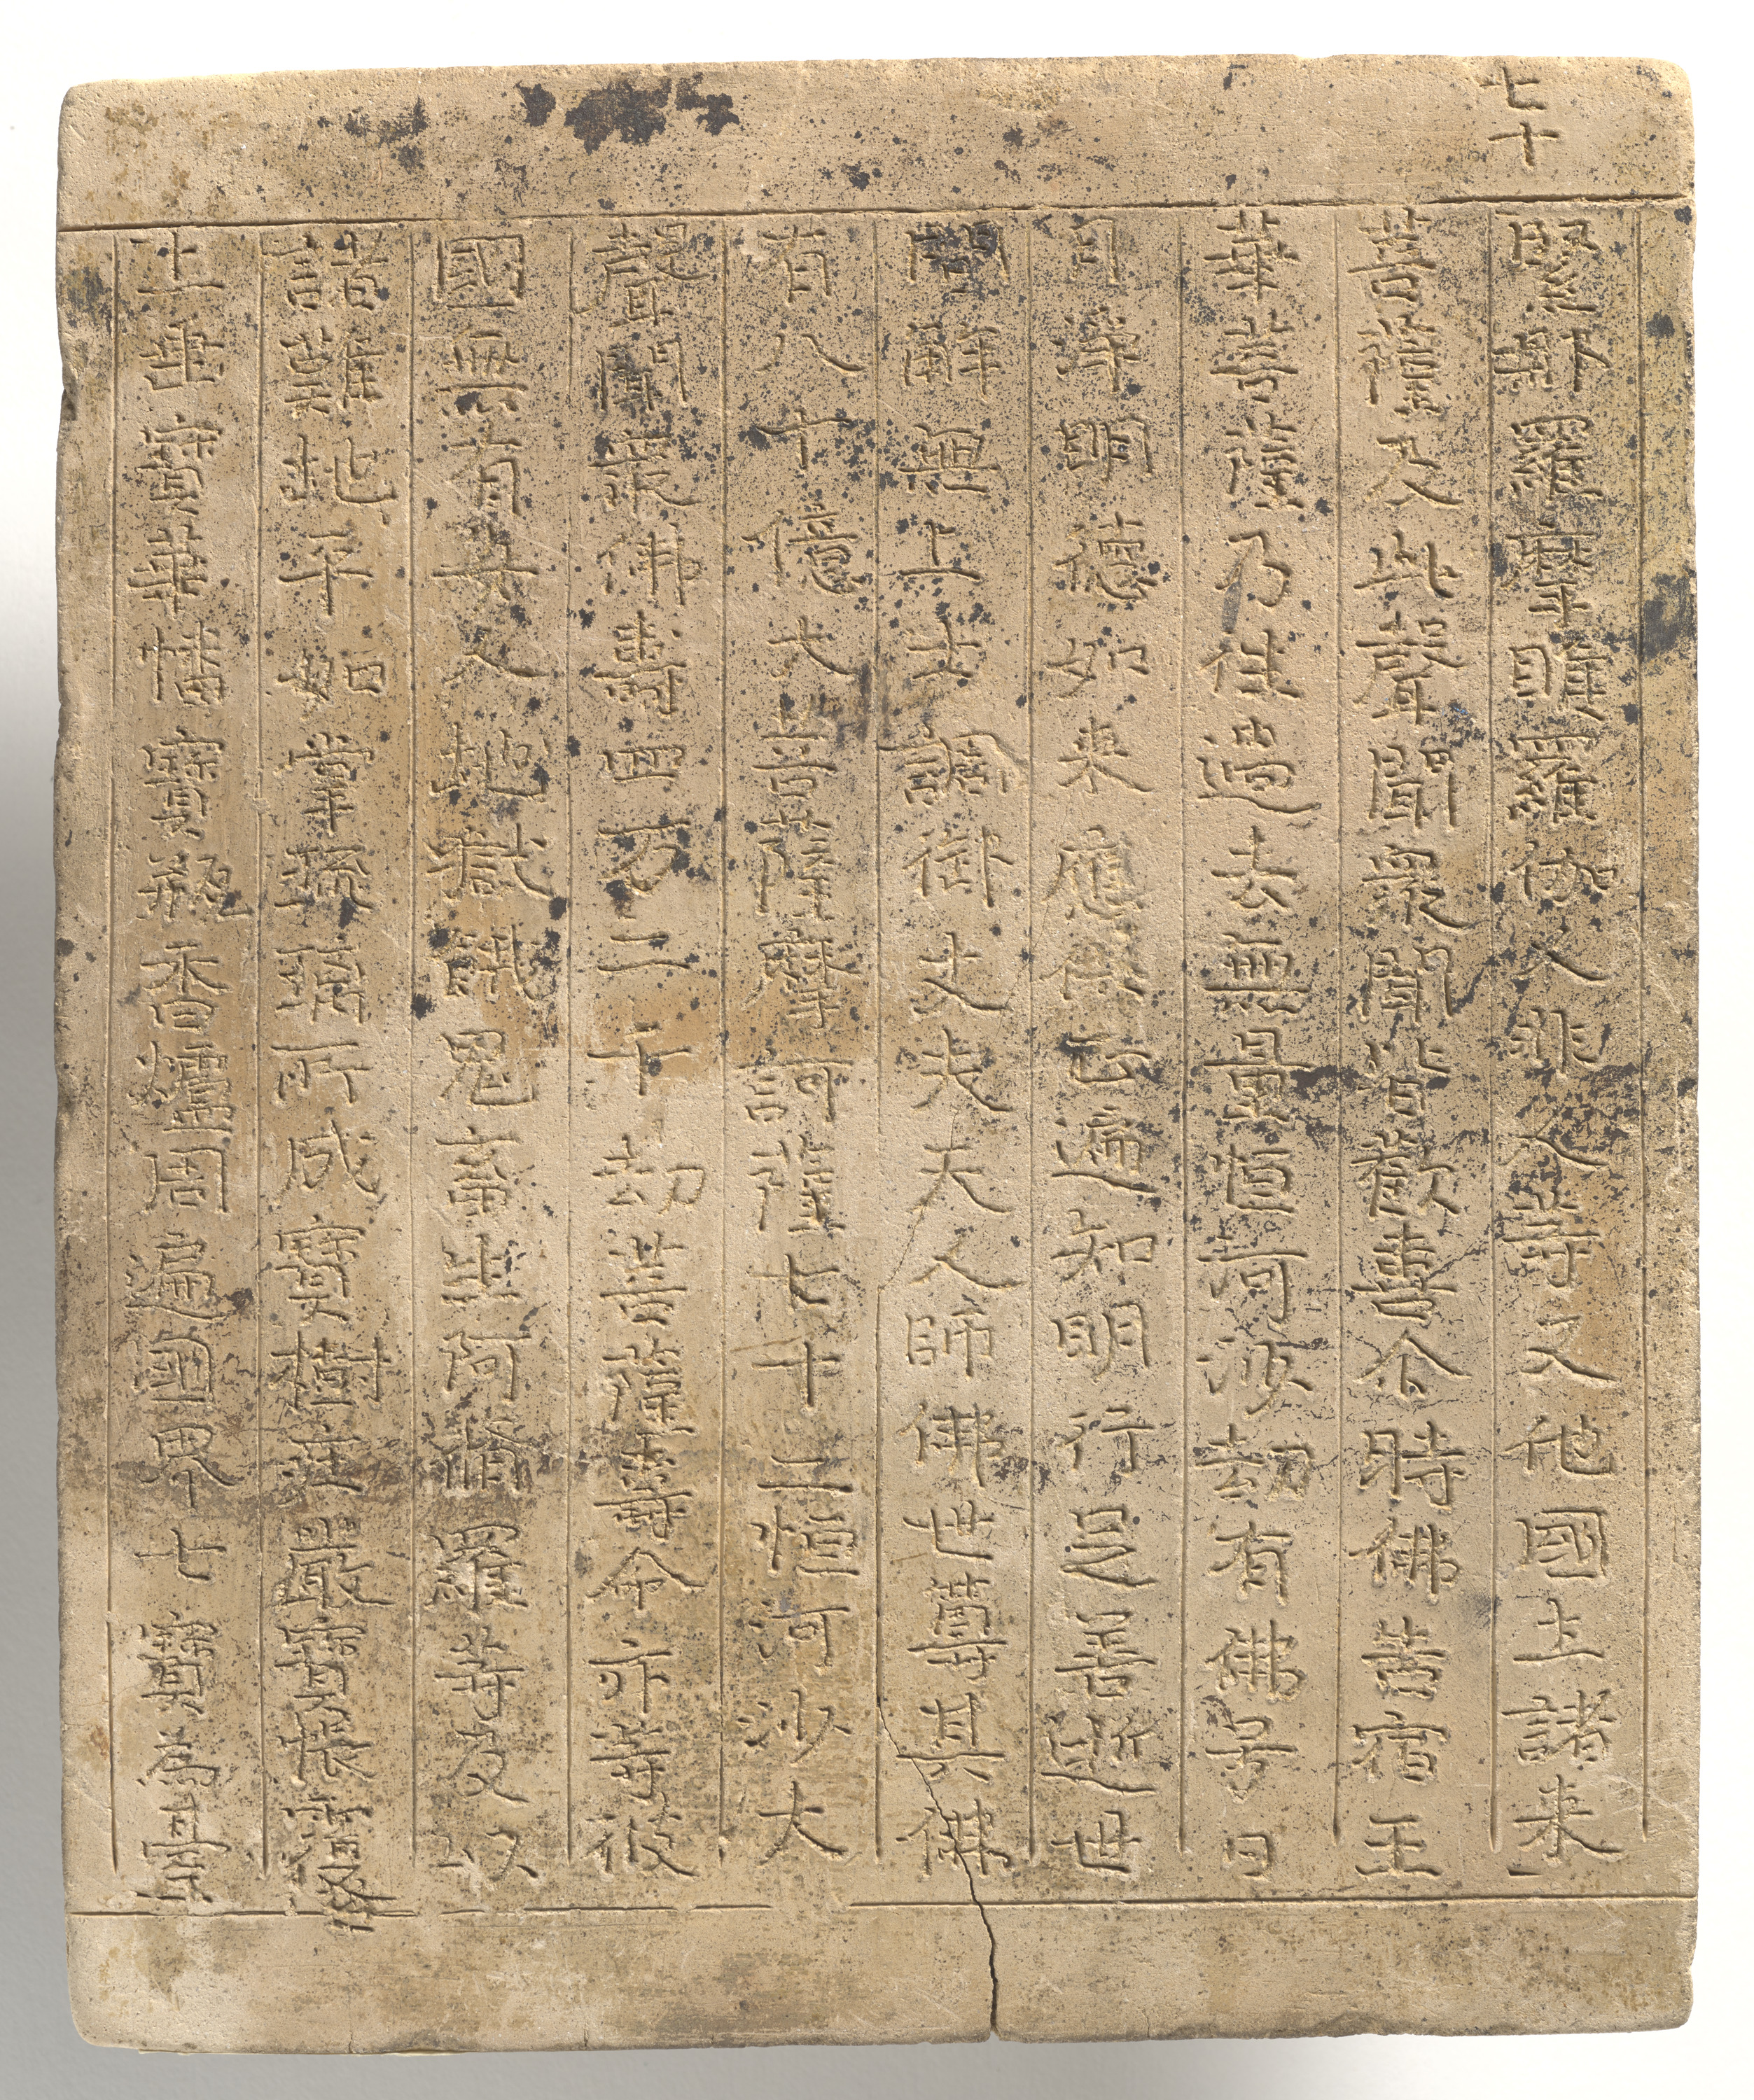 七十
緊那羅摩睺羅伽人非人等又他國土諸來
菩薩及此聲聞衆聞皆歡喜尒時佛告宿王
華菩薩乃往過去無量恒河沙劫有佛号日
月淨明德如来應供正遍知明行足善逝世
間解無上士調御丈夫天人師佛世尊其佛
有八十億大菩薩摩訶薩七十二恒河沙大
聲聞衆佛壽四万二千劫菩薩壽命亦等彼
國無有女人地獄餓鬼畜生阿脩羅等及以
諸難地平如掌琉璃所成寶樹莊嚴寶帳覆
上垂寶華幡寶瓶香爐周遍國界七寶為臺